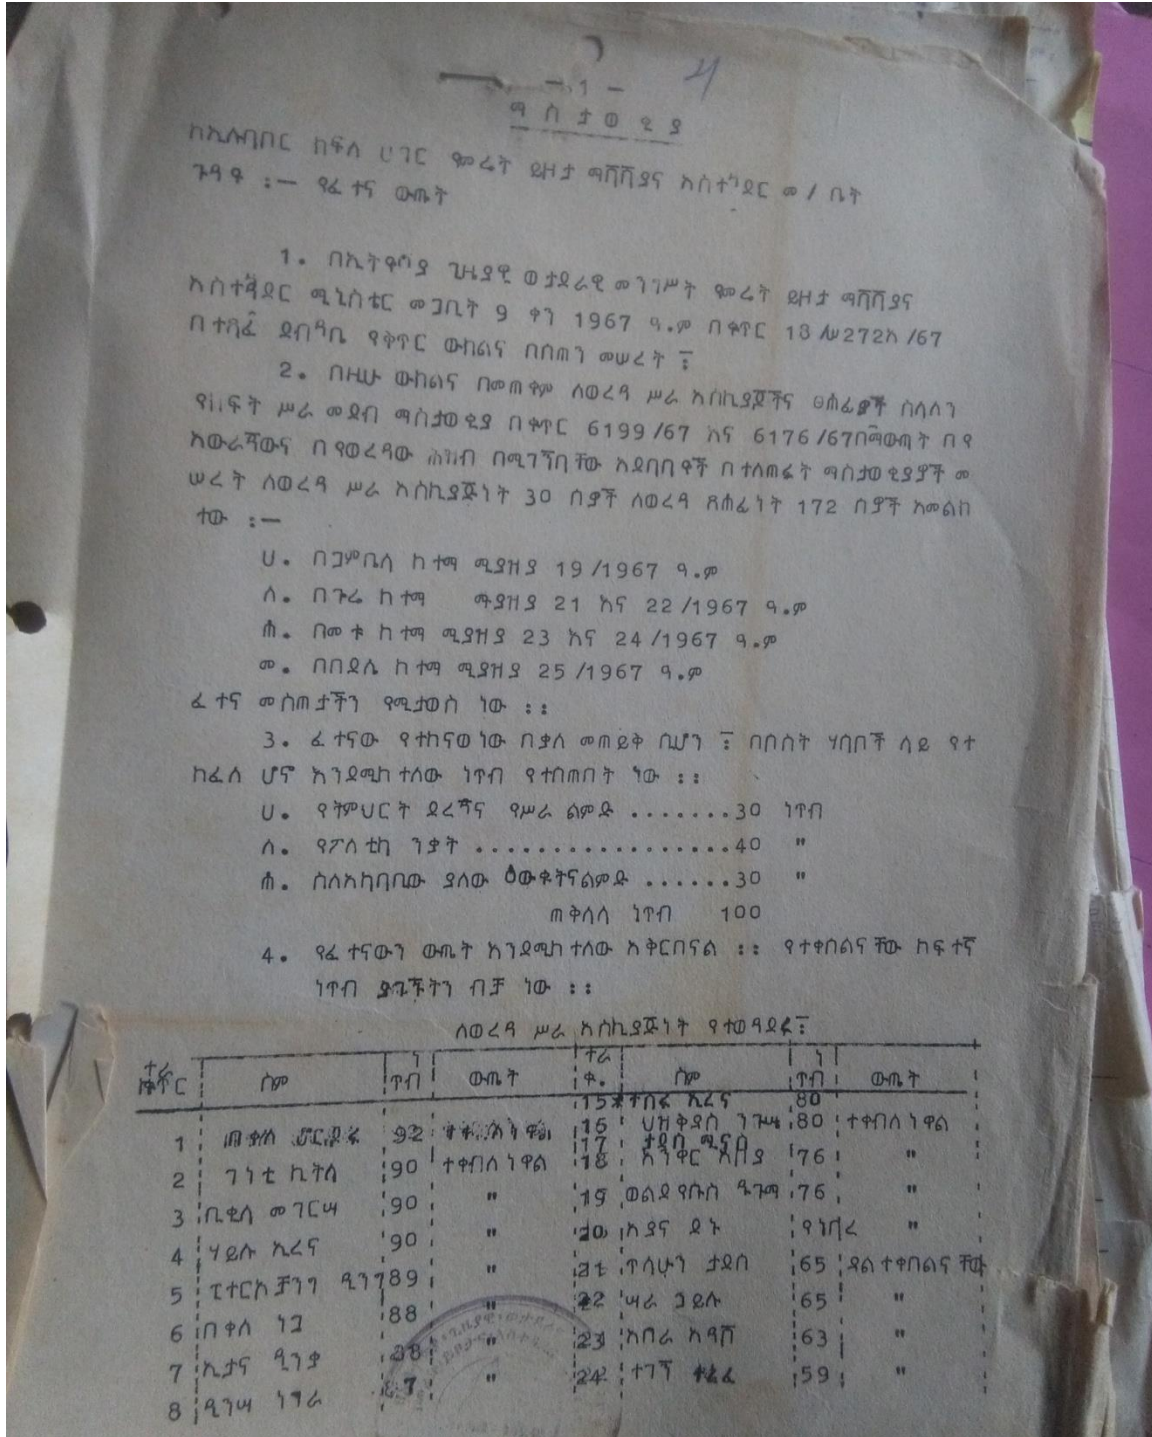 - 1 -
ማ ስ ታ ወ ቂ ያ
ከኢሉባቦር ክፍለ ሀገር የመሬት ይዞታ ማሻሻያና አስተዳደር መ / ቤት
ጉዳዩ :— የፈተና ውጤት
1. በኢትዮጵያ ጊዜያዊ ወታደራዊ መንግሥት የመሬት ይዞታ ማሻሻያና
አስተዳደር ሚኒስቴር መጋቢት 9 ቀን 1967 ዓ.ም በቁጥር
በተጻፈ ደብዳቤ የቅጥር ውክልና በሰጠን መሠረት ፤
2. በዚሁ ውክልና በመጠቀም ለወረዳ ሥራ አስኪያጆችና ፀሐፊዎች ስላለን
የክፍት ሥራ መደብ ማስታወቂያ በቁጥር 6199/67 እና 6176/67 በማውጣት በየ
አውራጃውና በየወረዳው ሕዝብ በሚገኝባቸው አደባባዮች በተለጠፈት ማስታወቂያዎች መ
ሠረት ለወረዳ ሥራ አስኪያጅነት 30 ሰዎች ለወረዳ ጸሐፊነት 172 ሰዎች አመልክ
ተው :—
ሀ. በጋምቤላ ከተማ ሚያዝያ 19/1967 ዓ.ም
ለ. በጐሬ ከተማ ሚያዝያ 21 እና 22/1967 ዓ.ም
ሐ. በመቱ ከተማ ሚያዝያ 23 እና 24/1967 ዓ.ም
መ. በበደሌ ከተማ ሚያዝያ 25/1967 ዓ.ም
ፈተና መስጠታችን የሚታወስ ነው ::
3. ፈተናው የተከናወነው በቃለ መጠይቅ ቢሆን ፤ በሶስት ሃሳቦች ላይ የተ
ከፈለ ሆኖ እንደሚከተለው ነጥብ የተሰጠበት ነው ::
ሀ. የትምህርት ደረጃና የሥራ ልምድ .......30 ነጥብ
ለ. የፖለቲካ ንቃት .................40 "
ሐ. ስለአካባቢው ያለው ዕውቀትናልምድ ......30 "
ጠቅላላ ነጥብ 100
4. የፈተናውን ውጤት እንደሚከተለው አቅርበናል :: የተቀበልናቸው ከፍተኛ
ነጥብ ያገኙትን ብቻ ነው ::
ለወረዳ ሥራ አስኪያጅነት የተወዳደሩ፤
ተራ ቁጥር ስም ነጥብ ውጤት ተራ ቁ. ስም ነጥብ ውጤት
15 ተሰሩ ኢረና 80
1 92 16 ህዝቅያስ ንጉሤ 80 ተቀብለነዋል
17
2 ገነቲ ኪትላ 90 ተቀብለነዋል 18 76 "
3 ቢቂላ መገርሣ 90 " 19 ወልደየሱስ ዱጉማ 76 "
4 ሃይሉ ኢረና 90 " 20 አያና ደኑ የነበረ "
5 ፒተርአቻንግ ዲንግ 89 " 21 ጥላሁን ታደሰ 65 ያልተቀበልናቸው
6 በቀለ ነጋ 88 " 22 ሣራ ኃይሉ 65 "
7 ኢታና ዲንቃ 88 " 23 አበራ 63 "
8 ዲንሣ ነገራ 87 " 24 ተገኝ ተፈራ 59 "